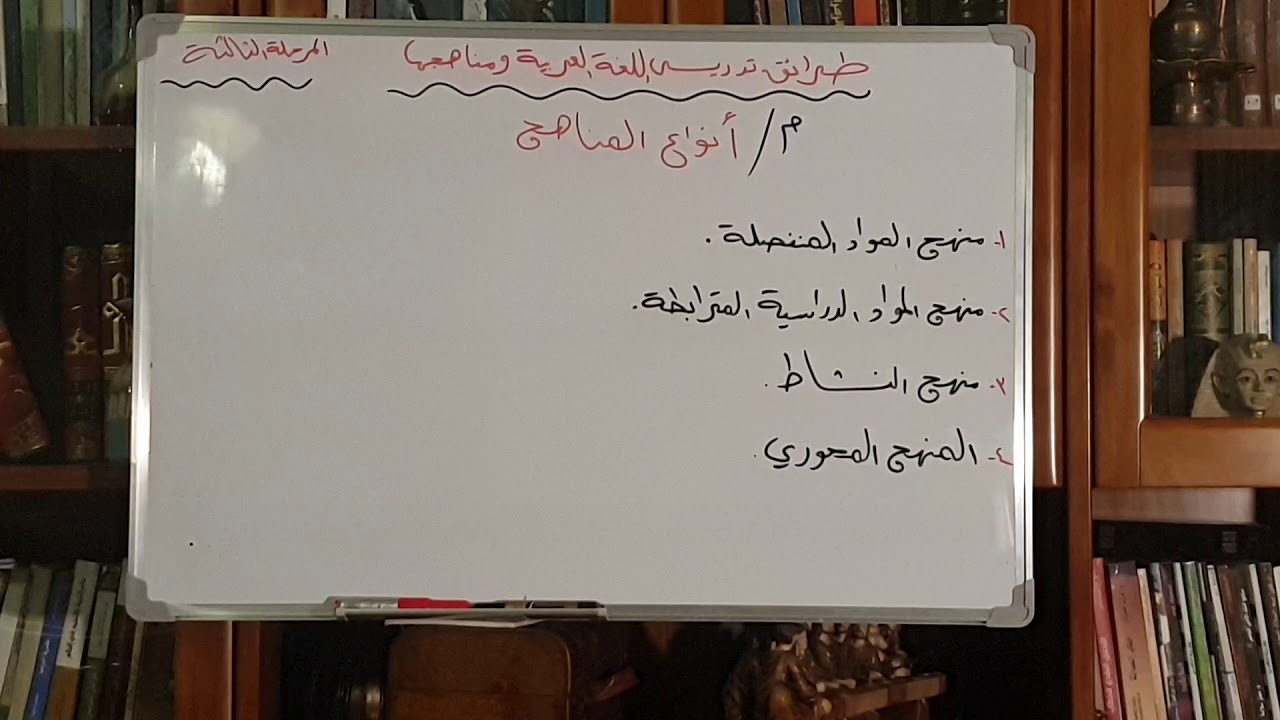 طرائق تدريس اللغة العربية ومناهجها
المرحلة الثالثة
م/ أنواع المناهج
١- منهج المواد المنفصلة.
٢- منهج المواد الدراسية المترابطة.
٣- منهج النشاط.
٤- المنهج المحوري.